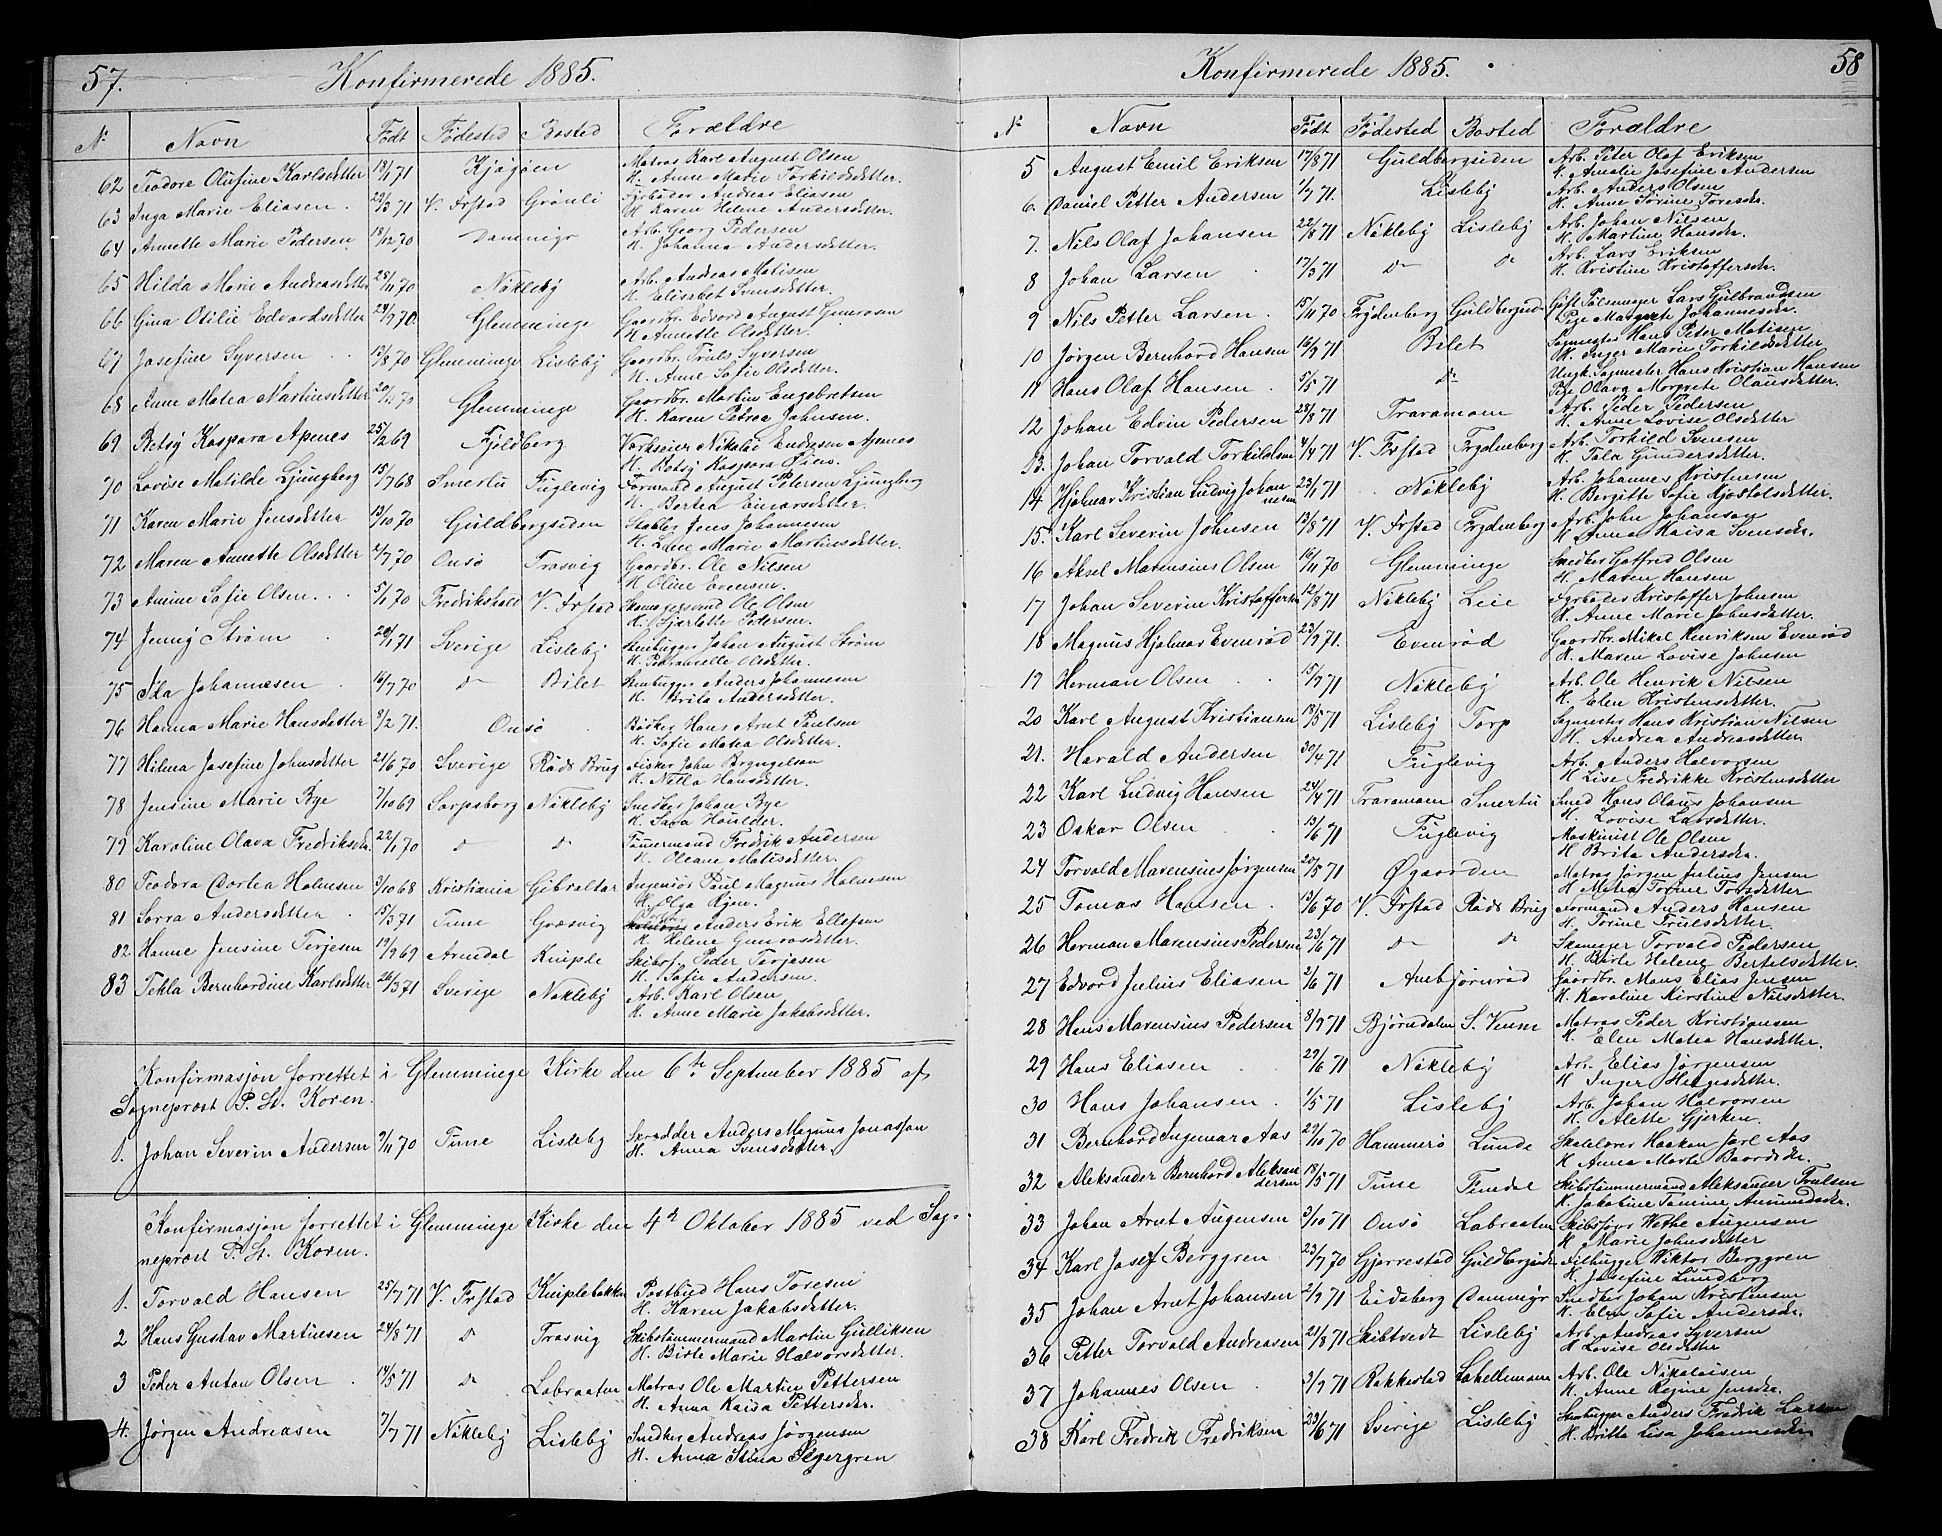 57.
Konfirmerede 1885.
No Navn Födt Födested Bosted Forældre
62 Teodore Olufine Karlsdatter 13/1 71 Kjøgøen Matros Karl August Olsen
H. Anne Marie Torkildsdatter.
63 Inga Marie Eliasen 29/3 71 V. Frstad Grønli Fyrbøder Andreas Eliasen
H. Karen Helene Andersdatter.
64 Annette Marie Pedersen 18/12 70 Dammigr Arb. Georg Pedersen
H. Johanna Andersdatter.
65 Hilda Marie Andreasdatter 28/11 70 Nøkleby Arb. Andreas Matisen
H. Elisabet Svensdatter.
66 Gina Otilie Edvardsdatter 24/9 70. Glemminge Gaardbr. Edvard August Gunrosen
H. Annette Olsdatter.
67 Josefine Syversen 13/8 70 Glemminge Lisleby Gaardbr. Truls Syversen
H. Anne Sofie Olsdatter.
68 Anne Matea Martinsdatter 20/12 70 Glemminge Gaardbr. Martin Engebretsen
H. Karen Petrea Johnsen.
69 Betsy Kaspara Apenes 25/2 69 Fjeldberg Værkseier Nikolai Endresen Apenes
H. Betsy Kaspara
70 Lovise Matilde Ljungberg 15/7 68 Smertu Fuglevig Formand August Petersen Ljungberg
H. Bertea Einarsdatter.
71 Karen Marie Jensdatter 13/10 70 Guldbergsiden Stabler Jens Johannesen
H. Lene Marie Martinsdatter.
72 Maren Annette Olsdatter 2/7 70 Onsø Trosvig Gaardbr. Ole Nilsen
H. Oline Evensen.
73 Amine Sofie Olsen 5/1 70 Fredrikshald V. Frstad Skomagersvend Ole Olsen
H. Sjarlotte Pedersen.
74 Jenny Strøm 20/1 71 Sverige Lisleby Stenhugger Johan August Strøm
H. Petronelle Olsdatter.
75 Ida Johannesen 16/7 70 do Bilet Stenhugger Anders Johannesen
H. Brita Andersdatter.
76 Hanna Marie Hansdatter 9/2 71. Onsø Bødker Hans Arnt Paulsen
H. Sofie Matea Olsdatter.
77 Hilma Josefine Johnsdatter 21/6 70 Sverige Råds Brug Fisker John Bryngelson
H. Netta Hansdatter.
78 Jensine Marie Bye 7/10 69 Sarpsborg Nøkleby Snedker Johan Bye
H. Sara Houlder.
79 Karoline Olava Fredriksdr. 22/1 70 do do Tømmermand Fredrik Andersen
H. Oleane Matisdatter.
80 Teodora Dortea Holmsen 3/10 68 Kristiania Gibraltar Ingeniør Paul Magnus Holmsen
H. Olga
81 Sarra Andersdatter 15/3 71 Tune Græsvig Anders Erik Ellefsen
H. Helene Gunrosdatter.
82 Hanne Jensine Terjesen 19/9 69 Arendal Kniple Skibsf. Peder Terjesen
H. Sofie Andersen
83 Tekla Bernhardine Karlsdatter 26/3 71 Sverige Nøkleby Arb. Karl Olsen
H. Anne Marie Jakobsdatter.
Konfirmasjon forrettet i Glemminge Kirke den 6te September 1885 af
Sogneprost P. St. Koren.
1. Johan Severin Andersen 9/11 70 Tune Lisleby Skrædder Anders Magnus Jonasson
H. Anna Svensdatter.
Konfirmasjon forrettet i Glemminge Kirke den 4de Oktober 1885 ved Sog-
neprost P. St. Koren.
1. Torvald Hansen 25/7 71 V. Frstad Kniplebakken Postbud Hans Toresen
H. Karen Jakobsdatter.
2 Hans Gustav Martinsen 24/8 71 do Trosvig Skibstømmermand Martin Gulliksen
H. Birte Marie Halvorsdatter.
3 Peder Anton Olsen 14/5 71 do Labraaten Matros Ole Martin Pettersen
H. Anna Kaisa Pettersdr.
4. Jørgen Andreasen 7/7 71 Nøkleby Lisleby Snedker Andreas Jørgensen
H. Anna Stina Segergren
58
Konfirmerede 1885.
No Navn Födt Födested Bosted Forældre
5 August Emil Eriksen 17/8 71 Guldbergsiden Arb. Peter Olaf Eriksen
H. Amalie Josefine Andersen
6. Daniel Petter Andersen 1/7 71. Lisleby Arb. Anders Olsen
H. Anne Torine Toresdr.
7. Nils Olaf Johansen 22/8 71 Nøkleby Lisleby Arb. Johan Nilsen
H. Martine Hansdr.
8 Johan Larsen 17/3 71 do do Arb. Lars Eriksen
H. Kristine Kristoffersdr.
9 Nils Petter Larsen 15/11 70 Frydenberg Guldbergsid. Gift Pølsemager Lars Gulbrandsen
Pige Margrete Johannesdr.
10 Jørgen Bernhard Hansen 16/9 71 Bilet Sagmester Hans Peter Matisen
H. Inger Marie Torkildsdatter
11 Hans Olaf Hansen 5/5 71 do Ungk. Sagmester Hans Kristian Hansen
Pige Olava Margrete Olausdatter.
12 Johan Edvin Pedersen 28/8 71 Traramoen Arb. Peder Pedersen
H. Anne Lovise Olsdatter
13. Johan Torvald Torkildsen 4/4 71 V. Frstad Frydenberg Arb. Torkild Svensen
H. Pila Gundersdatter.
14 Hjalmar Kristian Ludvig Johan
nesen 23/1 71 Nøkleby Arb. Johannes Kristensen
H. Bergitte Sofie Apostolsdatter.
15. Karl Severin Johnsen 13/8 71 V. Frstad Frydenberg Arb. John Johanson
H. Anna Kaisa Svensdr.
16 Aksel Marensius Olsen 16/11 70 Glemminge Snedker Gotfred Olsen
H. Maren Hansen
17 Johan Severin Kristoffersen 12/8 71 Nøkleby Leie Fyrbøder Kristoffer Johnsen
H. Anne Marie Johnsdatter.
18 Magnus Hjalmar Evenrød 23/9 71. Evenrød Gaardbr. Mikal Henriksen Evenrød
H. Maren Lovise Johnsen
19 Herman Olsen 15/9 71 Nøkleby Arb. Ole Henrik Nilsen
H. Elen Kristensdatter.
20 Karl August Kristiansen 18/5 71 Lisleby Torp Sagmester Hans Kristian Nilsen
H. Andrea Andreasdatter.
21. Harald Andersen 30/4 71 Fuglevig Arb. Anders Halvorsen
H. Lise Fredrikke Kristensdatter
22 Karl Ludvig Hansen 24/4 71 Traramoen Smertu Smed Hans Olaus Johansen
H. Lovise Larsdatter.
23 Oskar Olsen 13/6 71 Fuglevig Maskinist Ole Olsen
H. Brita Andersdr.
24 Torvald Marensius Jørgensen 20/5 71 Øgaarden Matros Jørgen Julius Jensen
H. Matea Torine Torsdatter
25 Tomas Hansen 13/6 70 V. Frstad Råds Brug Formand Anders Hansen
H. Torine Trulsdatter.
26 Herman Marensius Pedersen 23/6 71 do do Skomager Torvald Pedersen
H. Birte Helene Bertelsdatter.
27 Edvard Julius Eliasen 2/6 71 Ambjørnrød Gaardbr. Mons Elias Jensen
H. Karoline Kirstine Nilsdatter.
28 Hans Marensius Pedersen 8/9 71 Bjørndalen S. Veum Matros Peder Kristiansen
H. Elen Matea Hansdatter.
29 Hans Eliasen 29/6 71 Nøkleby Arb. Elias Jørgensen
H. Inger Helgesdatter.
30 Hans Johansen 1/5 71 Lisleby Arb. Johan Halvorsen
H. Alette Gjerken.
31 Bernhard Ingemar Aas 29/10 70 Hammerø Lunde Skolelærer Haakon Jarl Aas
H. Anna Marte Baardsdr.
32 Aleksander Bernhard Aleksan
dersen 18/5 71 Tune Fundal Skibstømmermand Aleksander Trulsen
H. Jakobine Tomine Amundsdr.
33 Johan Arnt Augensen 3/10 71 Onsø Labraaten Skibsfører Vethe Augensen
H. Marie Johnsdatter
34 Karl Josef Berggren 23/7 70 Gjørrestad Guldbergsiden Filhugger Viktor Berggren
H. Josefine Lundberg
35 Johan Arnt Johansen 2/9 71 Eidsberg Dammigr Snedker Johan Kristensen
H. Elen Sofie Andersdr.
36 Petter Torvald Andreasen 21/8 71 Skibtvedt Lisleby Arb. Andreas Syversen
H. Lovise Olsdatter
37 Johannes Olsen 3/9 71 Rakkestad Labellemoen Arb. Ole Nikolaisen
H. Anne Regine Jensdr.
38 Karl Fredrik Fredriksen 23/6 71 Sverige Lisleby Stenhugger Anders Fredrik Larsen
H. Britta Lisa Johannesdr.